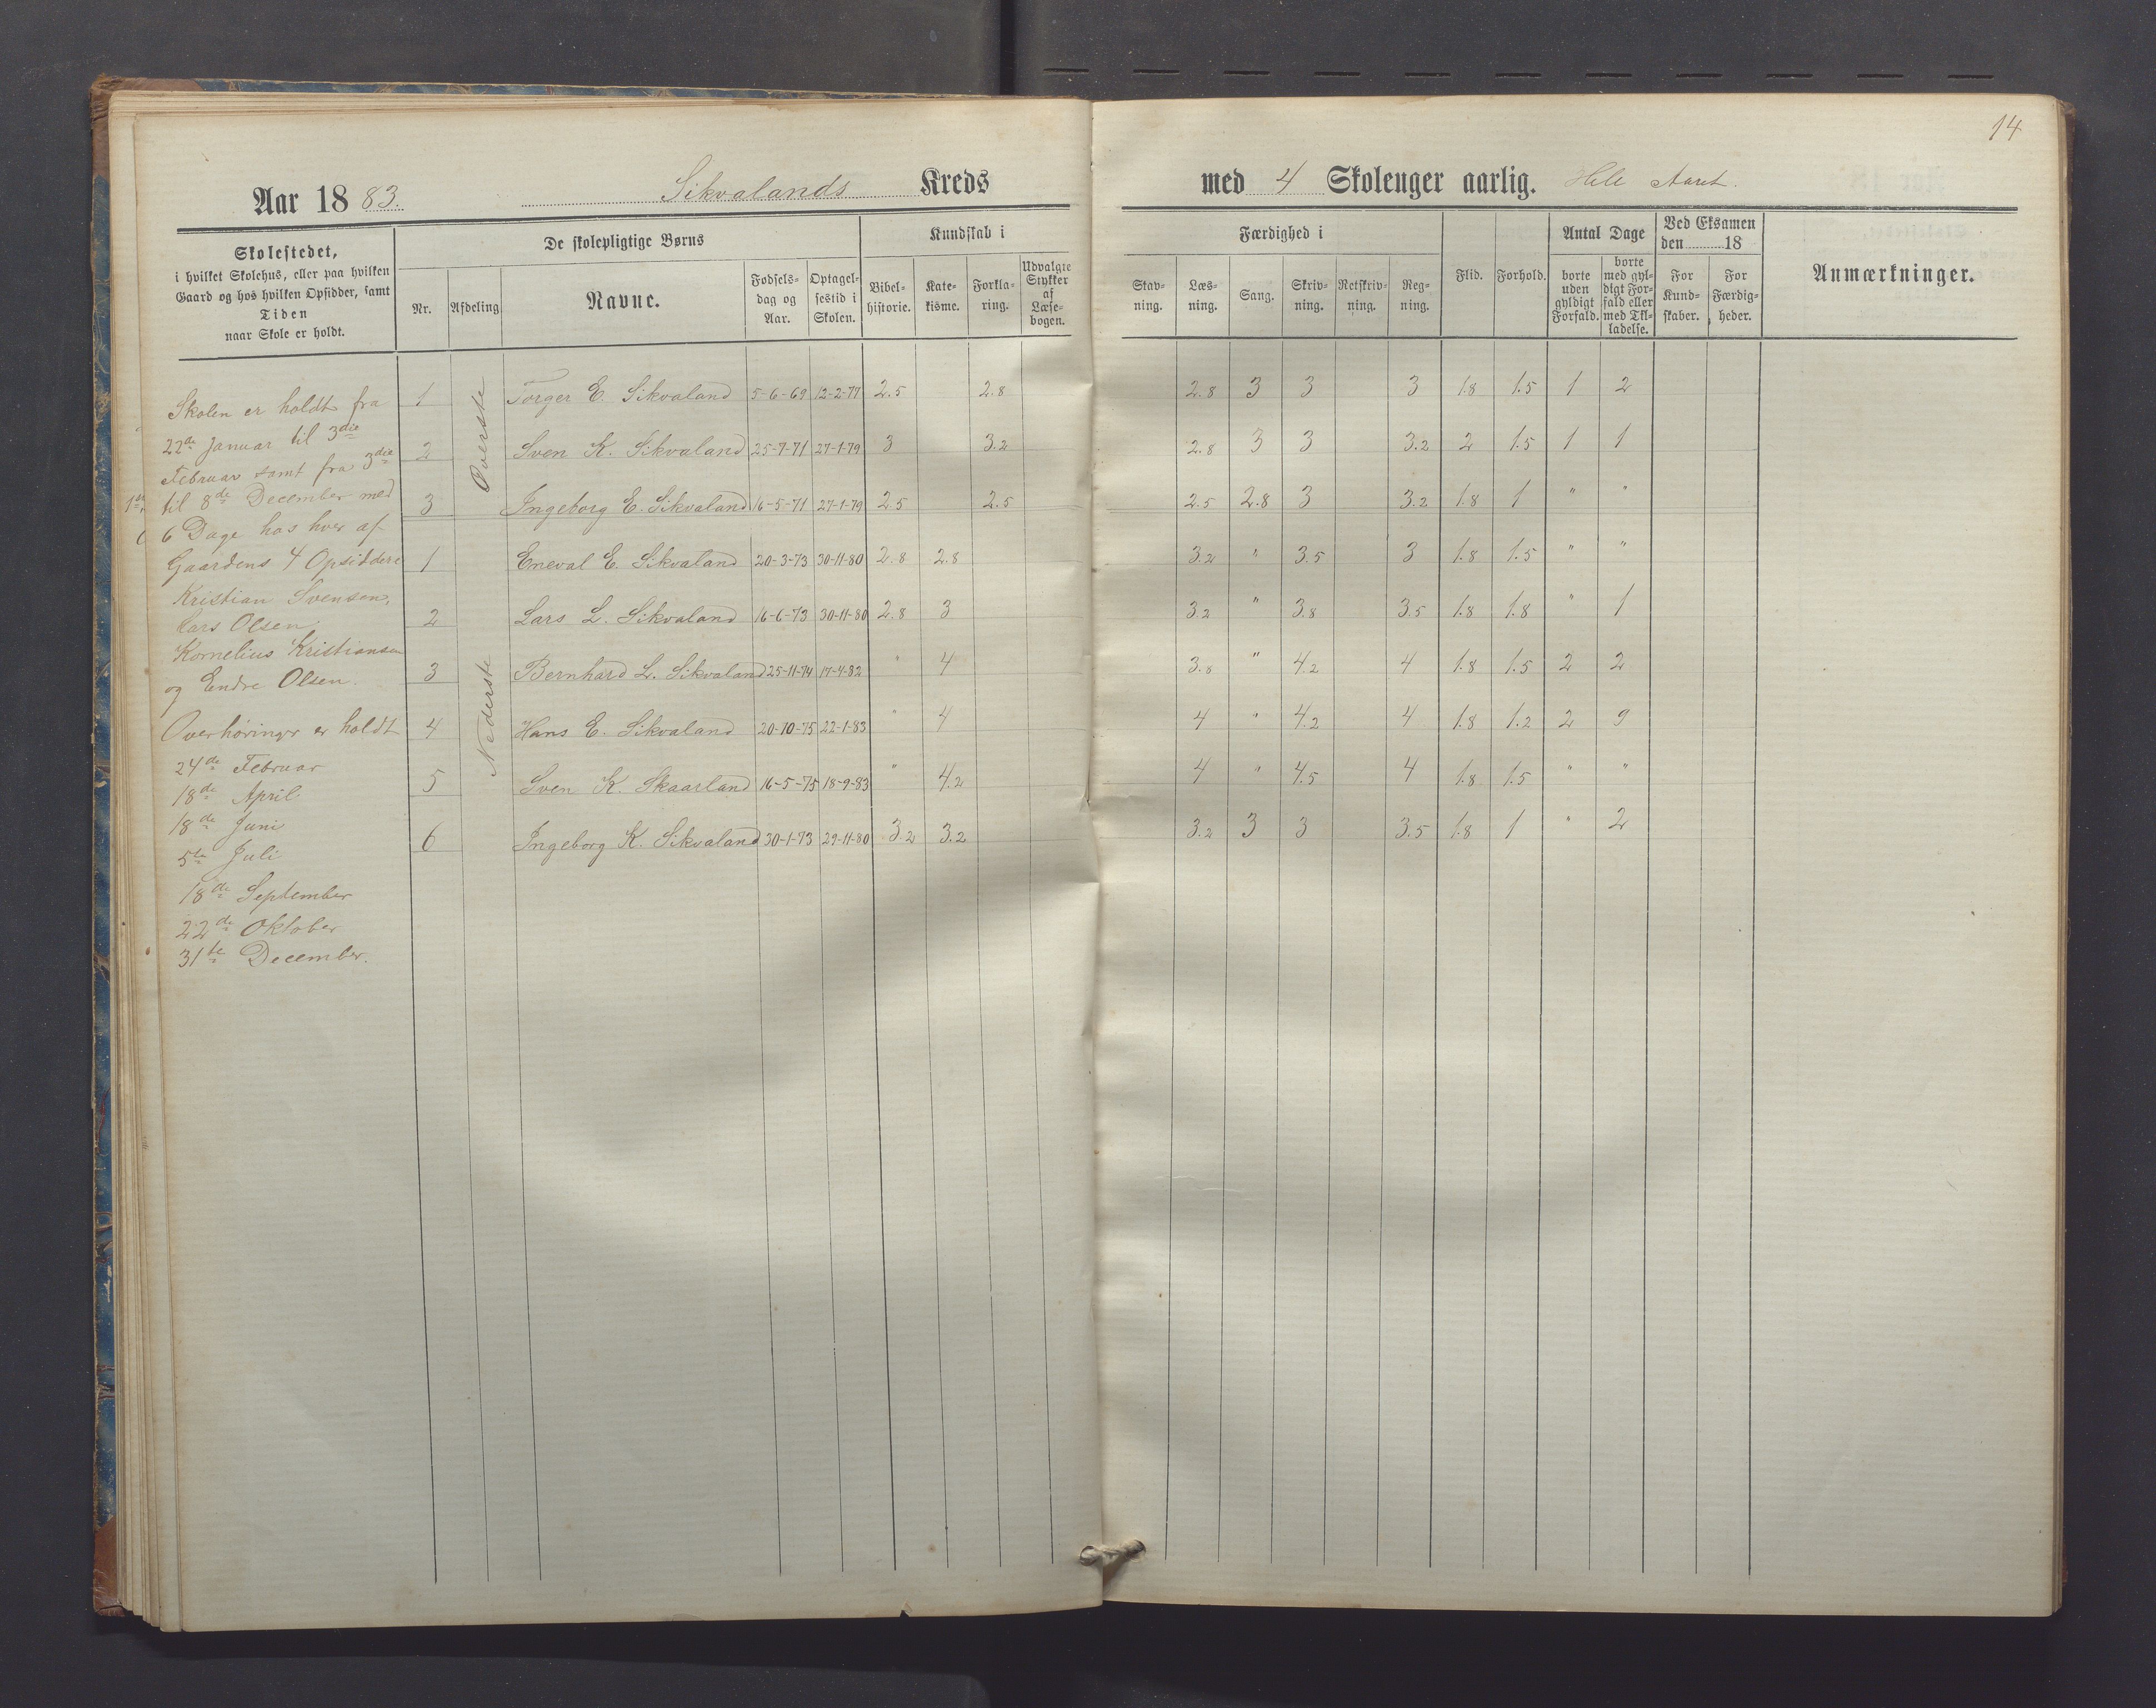 14
Aar 1883. Sikvalands Kreds med 4 Skoleuger aarlig. Hele Aaret.
Skolestedet,
i hvilket Skolehus, eller paa hvilken
Gaard og hos hvilken Opsidder, samt
Tiden
naar Skole er holdt.
De skolepligtige Børns
Nr.
Afdeling
Navne.
Fødsels-
dag og
Aar.
Optagel-
sestid i
Skolen.
Kundskab i
Bibel-
historie.
Kate-
kisme.
Forkla-
ring.
Udvalgte
Stykker
af
Læse-
bogen.
Færdighed i
Stav-
ning.
Læs-
ning.
Sang.
Skriv-
ning.
Retskriv-
ning.
Reg-
ning.
Flid.
Forhold.
Antal Dage
borte
uden
gyldigt
Forfald.
borte
med gyl-
digt For-
fald eller
med Til-
ladelse.
Ved Eksamen
den 18
For
Kund-
skaber.
For
Færdig-
heder.
Anmærkninger.
Skolen er holdt fra
22de Januar til 3die
Februar samt fra 3die
til 8de December med
6 Dage hos hver af
Gaardens 4 Opsiddere
Kristian Svensen,
Lars Olsen,
Kornelius Kristiansen
og Endre Olsen.
Overhøringer er holdt
24de Februar
18de April
18de Juni
5te Juli
18de September
22de Oktober
31te December.
Øverste
1 Torger E. Sikvaland 5-6-69 12-2-77 2.5 2.8 2.8 3 3 3 1.8 1.5 1 2
2 Sven K. Sikvaland 25-7-71 27-1-79 3 3.2 2.8 3 3 3.2 2 1.5 1 1
3 Ingeborg E. Sikvaland 16-5-71 27-1-79 2.5 2.5 2.5 2.8 3 3.2 1.8 1 " "
Nederste
1 Eneval E. Sikvaland 20-3-73 30-11-80 2.8 2.8 3.2 " 3.5 3 1.8 1.5 " "
2 Lars L. Sikvaland 16-6-73 30-11-80 2.8 3 3.2 " 3.8 3.5 1.8 1.8 " 1
3 Bernhard L. Sikvaland 25-11-74 17-4-82 " 4 3.8 " 4.2 4 1.8 1.5 2 2
4 Hans E. Sikvaland 20-10-75 22-1-83 " 4 4 " 4.2 4 1.8 1.2 2 9
5 Sven K. Skaarland 16-5-75 18-9-83 " 4.2 4 " 4.5 4 1.8 1.5 " "
6 Ingeborg K. Sikvaland 30-1-73 29-11-80 3.2 3.2 3.2 3 3 3.5 1.8 1 " 2